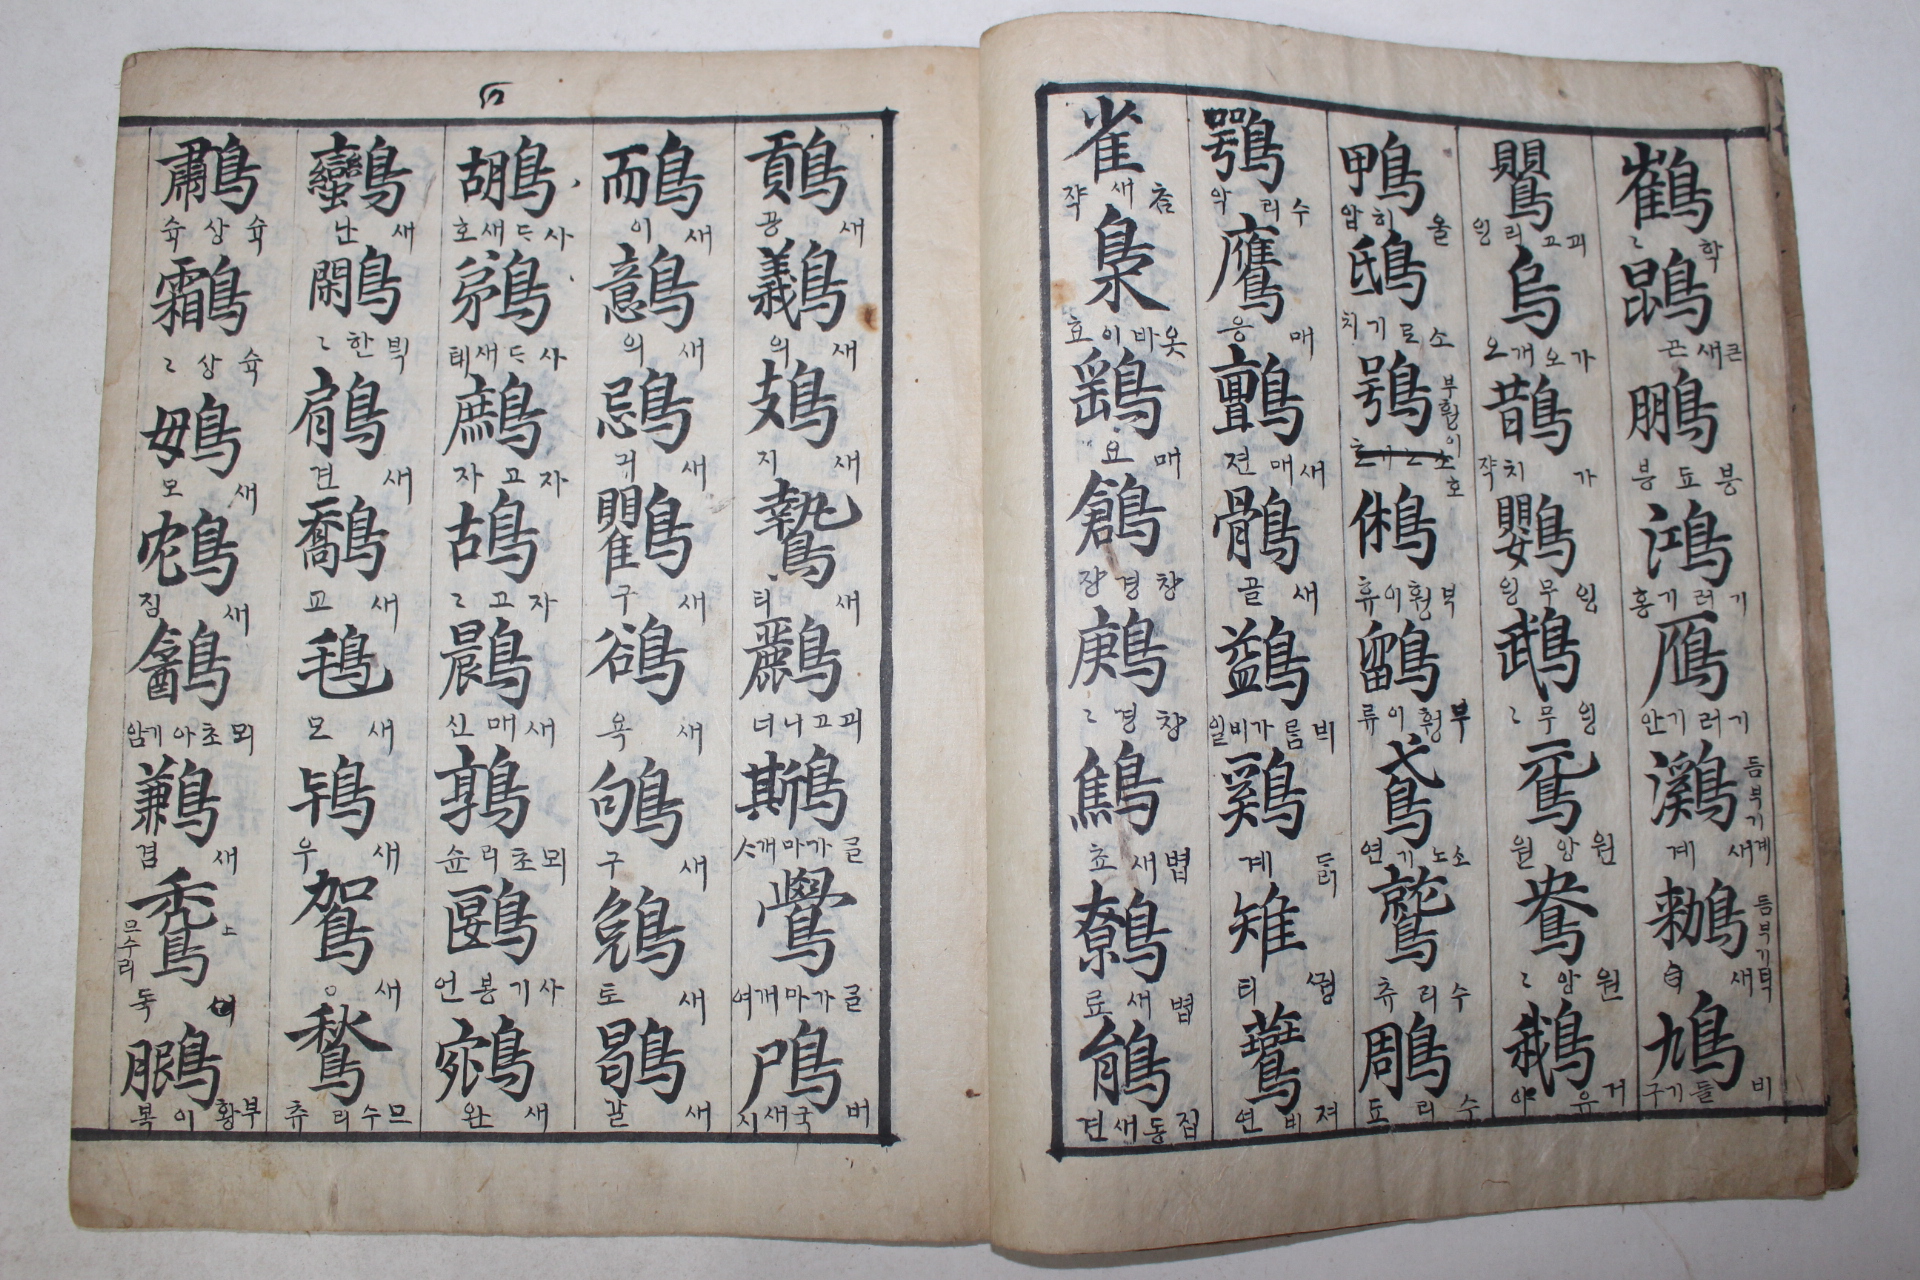 鶴 학〻 鵾 큰새곤 鵬 붕됴붕 鴻 기러기홍 鴈 기러기안 鸂 듬부기계 새계 鶒 듬부기 새 鳩 비들기구
鸎 괴고리잉 烏 가오개오 鵲 가치쟉 鸚 잉무잉 鵡 잉무〻 鴛 원앙원 鴦 원앙〻 鵝 거유아
鴨 올히압 鴟 소로기치 鴞 부훵이호 鵂 벅훵이휴 鶹 부훵이류 鳶 소노기연 鷲 수리츄 鵰 수리됴
鶚 수리악 鷹 매응 鸇 새매젼 鶻 새골 鷁 비름가비일 鷄 계 雉 티 鷰 져비연
雀 참새쟉 梟 옷바이효 鷂 매요 鶬 창경창 鶊 창경〻 鷦 볍새쵸 鷯 볍새료 鵳 집동새견
새공 鸃 새의 鳷 새지 鷙 새티 鸝 괴꼬니녀 글가마개 鸒 글가마개여 鳲 버국새시
鴯 새이 鷾 새의 鵋 새긔 鸜 새구 鵒 새욕 鴝 새구 鵵 새토 鶡 새갈
鶘 사드새호 鵜 사드새톄 鷓 자고자 鴣 자고〻 鷐 새매신 鶉 뫼초리슌 鶠 사기봉언 鵷 새완
鸞 새난 鷴 븩한〻 鵳 새견 鷮 새교 새모 새우 새 鶖 므수리츄
五
鷫 슉상슉 鸘 슉상〻 새모 鴆 새짐 뫼초아기암 鶼 새겸 鵚 므수리 독 鵩 부황이복